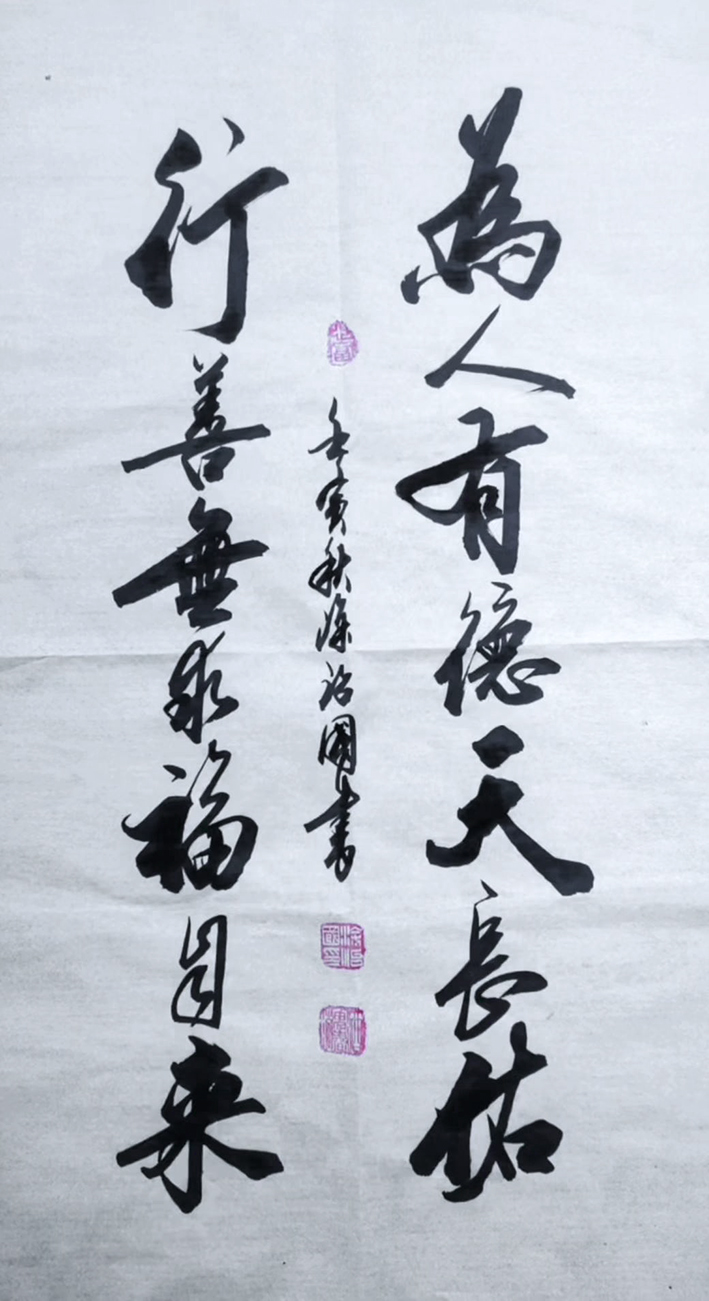 為人有德天長佑
壬寅秋治國書
行善無求福自来